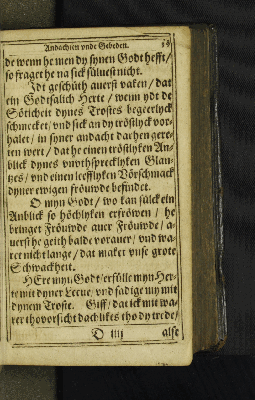 Andachten vnde Gebeden.
de wenn he men dy synen Godt hefft/
so fraget he na sick sülvest nicht.
Idt geschüth auerst vaken / dat
ein Godtsalich Herte / wenn ydt de
Söticheit dynes Trostes begeerlyck
schmecket/ vnd sick an dy tröstlyck vor-
halet / in syner andacht darhen gere-
ten wert / dat he einen tröstlyken An-
blick dynes vnvthspreklyken Glan-
tzes/ vnd einen leefflyken Vörschmack
dyner ewigen fröuwde befindet.
O myn Godt/ wo kan sülck ein
Anblick so höchlyken erfröwen / he
bringet Fröuwde auer Fröuwde/ a-
uerst he geith balde vorauer/ vnd wa-
ret nicht lange / dat maket vnse grote
Schwackheit.
HEre myn Godt/ erfülle myn Her-
te mit dyner Leeue/ vnd sadige my mit
dynem Troste. Giff/ dat ick mit wa-
rer thovorsicht dachlikes tho dy trede/
O iiij alse